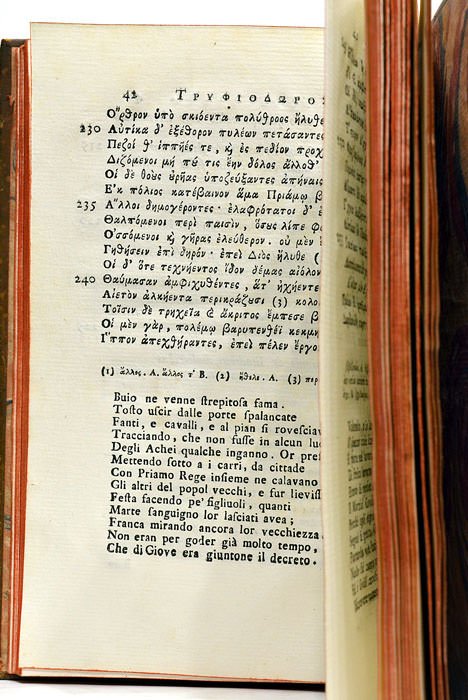 42 ΤΡΥΦΙΟΔΩΡΟΣ
Ὄρθρον ὑπὸ σκιόεντα πολύθροος ἤλυθε
230 Αὐτίκα δ' ἐξέθορον πυλέων πετάσαντες
Πεζοί θ' ἱππῆές τε, ϗ ἐς πεδίον προχ
Διζόμενοι μή πύ τις ἔην δόλος ἄλλοθ'
Οἱ δὲ θοὺς ὀρῆας ὑποζεύξαντες ἀπήναις
Ἐκ πόλιος κατέβαινον ἅμα Πριάμῳ β
235 Ἄλλοι δημογέροντες· ἐλαφρότατοι δ' ἐ
Θαλπόμενοι περὶ παισὶν, ὅσυς λίπε φο
Ὀσσόμενοι ϗ γῆρας ἐλεύθερον. οὐ μὲν
Γηθήσειν ἐπὶ δηρόν· ἐπεὶ Διὸς ἤλυθε (
Οἱ δ' ὅτε τεχνήεντος ἴδον δέμας αἰόλον
240 Θαύμασαν ἀμφιχυθέντες, ἅτ' ἠχήεντε
Αἰετὸν ἀλκήεντα περικράζυσι (3) κολο
Τοῖσιν δὲ τρηχεῖα ϗ ἄκριτος ἔμπεσε β
Οἱ μὲν γὰρ, πολέμῳ βαρυπενθέϊ κεκμη
Ἵππον ἀπεχθήραντες, ἐπεὶ πέλεν ἔργο
(1) ἄλλος. A. ἄλλος τ' B. (2) ἤθελε. A. (3) περ
Buio ne venne strepitosa fama.
Tosto uscir dalle porte spalancate
Fanti, e cavalli, e al pian si rovesciav
Tracciando, che non fusse in alcun luo
Degli Achei qualche inganno. Or pref
Mettendo sotto a i carri, da cittade
Con Priamo Rege insieme ne calavano
Gli altri del popol vecchi, e fur lieviss
Festa facendo pe' figliuoli, quanti
Marte sanguigno lor lasciati avea;
Franca mirando ancora lor vecchiezza
Non eran per goder già molto tempo,
Che di Giove era giuntone il decreto.